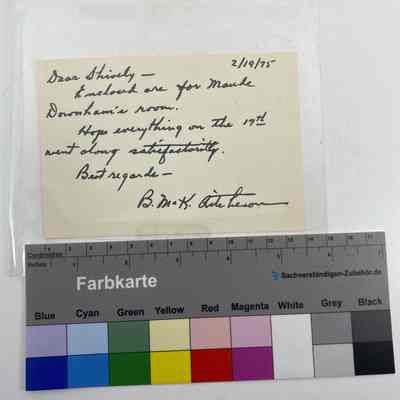 2/19/75
Dear Shively —
Enclosed are for Maude
Downham's room.
Hope everything on the 17th
went along satisfactorily.
Best regards —
B. McK. Aitcheson
Centimetres
Inches
Farbkarte
Sachverständigen-Zubehör.de
Blue Cyan Green Yellow Red Magenta White Grey Black